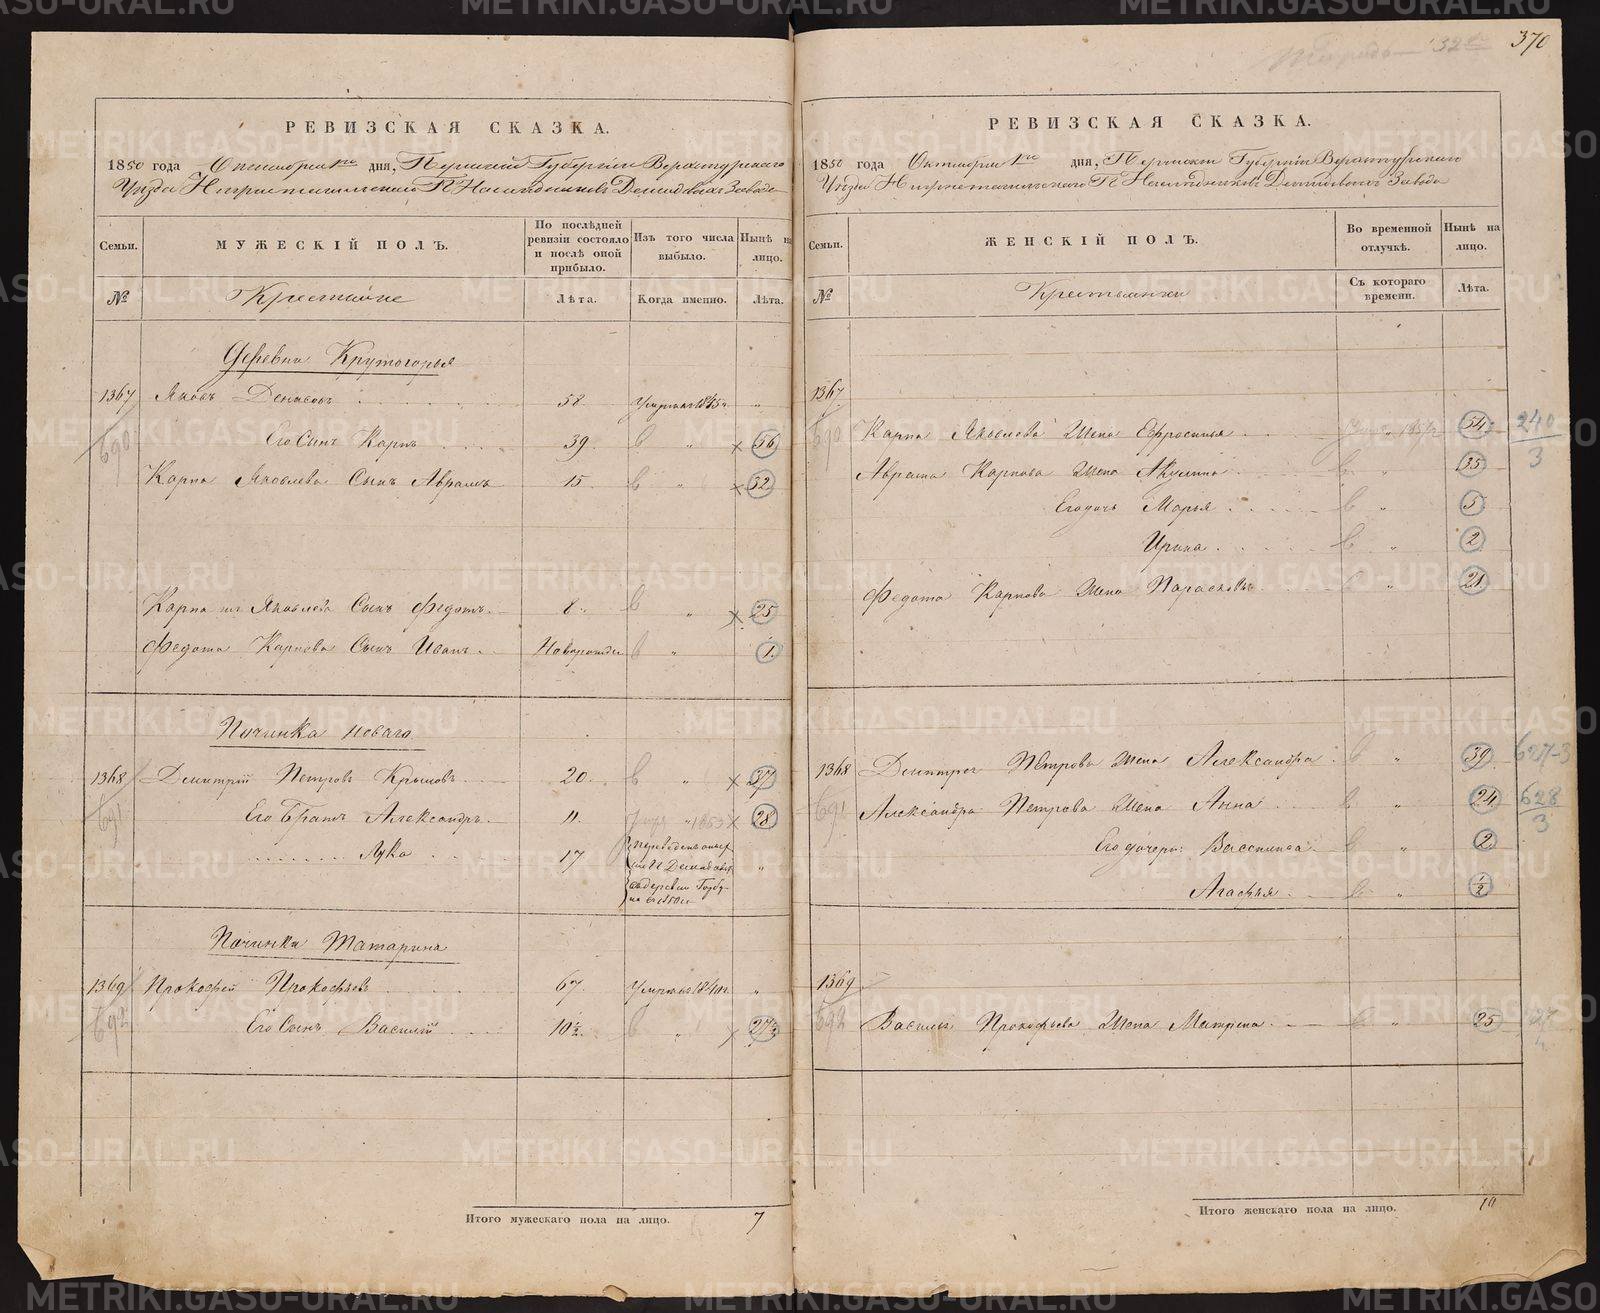 370
РЕВИЗСКАЯ СКАЗКА.
1850 года Октября 1го дня, Пермской Губернии Верхотурского
Уезда Нижнетагильского Гг Наследников Демидовых Завода
Семьи.
МУЖЕСКІЙ ПОЛЪ.
По послѣдней ревизіи состояло и послѣ оной прибыло.
Изъ того числа выбыло.
Нынѣ на лицо.
№
Крестьяне
Лѣта.
Когда именно.
Лѣта.
Деревни Крутогорья
1367 Яковъ Денисовъ 58. Умръ въ 1845 г. "
690 Его Сынъ Карпъ 39. " 56
Карпа Яковлева Сынъ Аврамъ 15. " 32
Карпа Яковлева Сынъ Федотъ 8. " 25
Федота Карпова Сынъ Иванъ Новорожден " 1.
Починка Новаго
1368 Дмитрій Петровъ Крыловъ 20. " 37
691 Его Братъ Александръ 11. 1853 28
Лука 17 "
Починка Татарина
1369 Прокофей Прокофьевъ 67. Умръ въ 1840 г. "
692 Его Сынъ Василій 10½. " 27½
Итого мужескаго пола на лицо. 7
РЕВИЗСКАЯ СКАЗКА.
1850 года Октября 1го дня, Пермской Губерніи Верхотурского
Уезда Нижнетагильского Гг Наследниковъ Демидовыхъ Завода
Семьи.
ЖЕНСКІЙ ПОЛЪ.
Во временной отлучкѣ.
Нынѣ на лицо.
№
Крестьянки
Съ котораго времени.
Лѣта.
1367
690 Карпа Яковлева Жена Ефросинья 54 240/3
Аврама Карпова Жена Акулина " 35
Его дочь Марья " 5
Ирина " 2
Федота Карпова Жена Парасковья " 21
1368 Дмитрея Петрова Жена Александра " 39 627-3
691 Александра Петрова Жена Анна " 24 628/3
Его дочери: Василиса " 2
Агафья " ½
1369
692 Василья Прокофьева Жена Матрена " 25
Итого женскаго пола на лицо. 10
METRIKI.GASO-URAL.RU